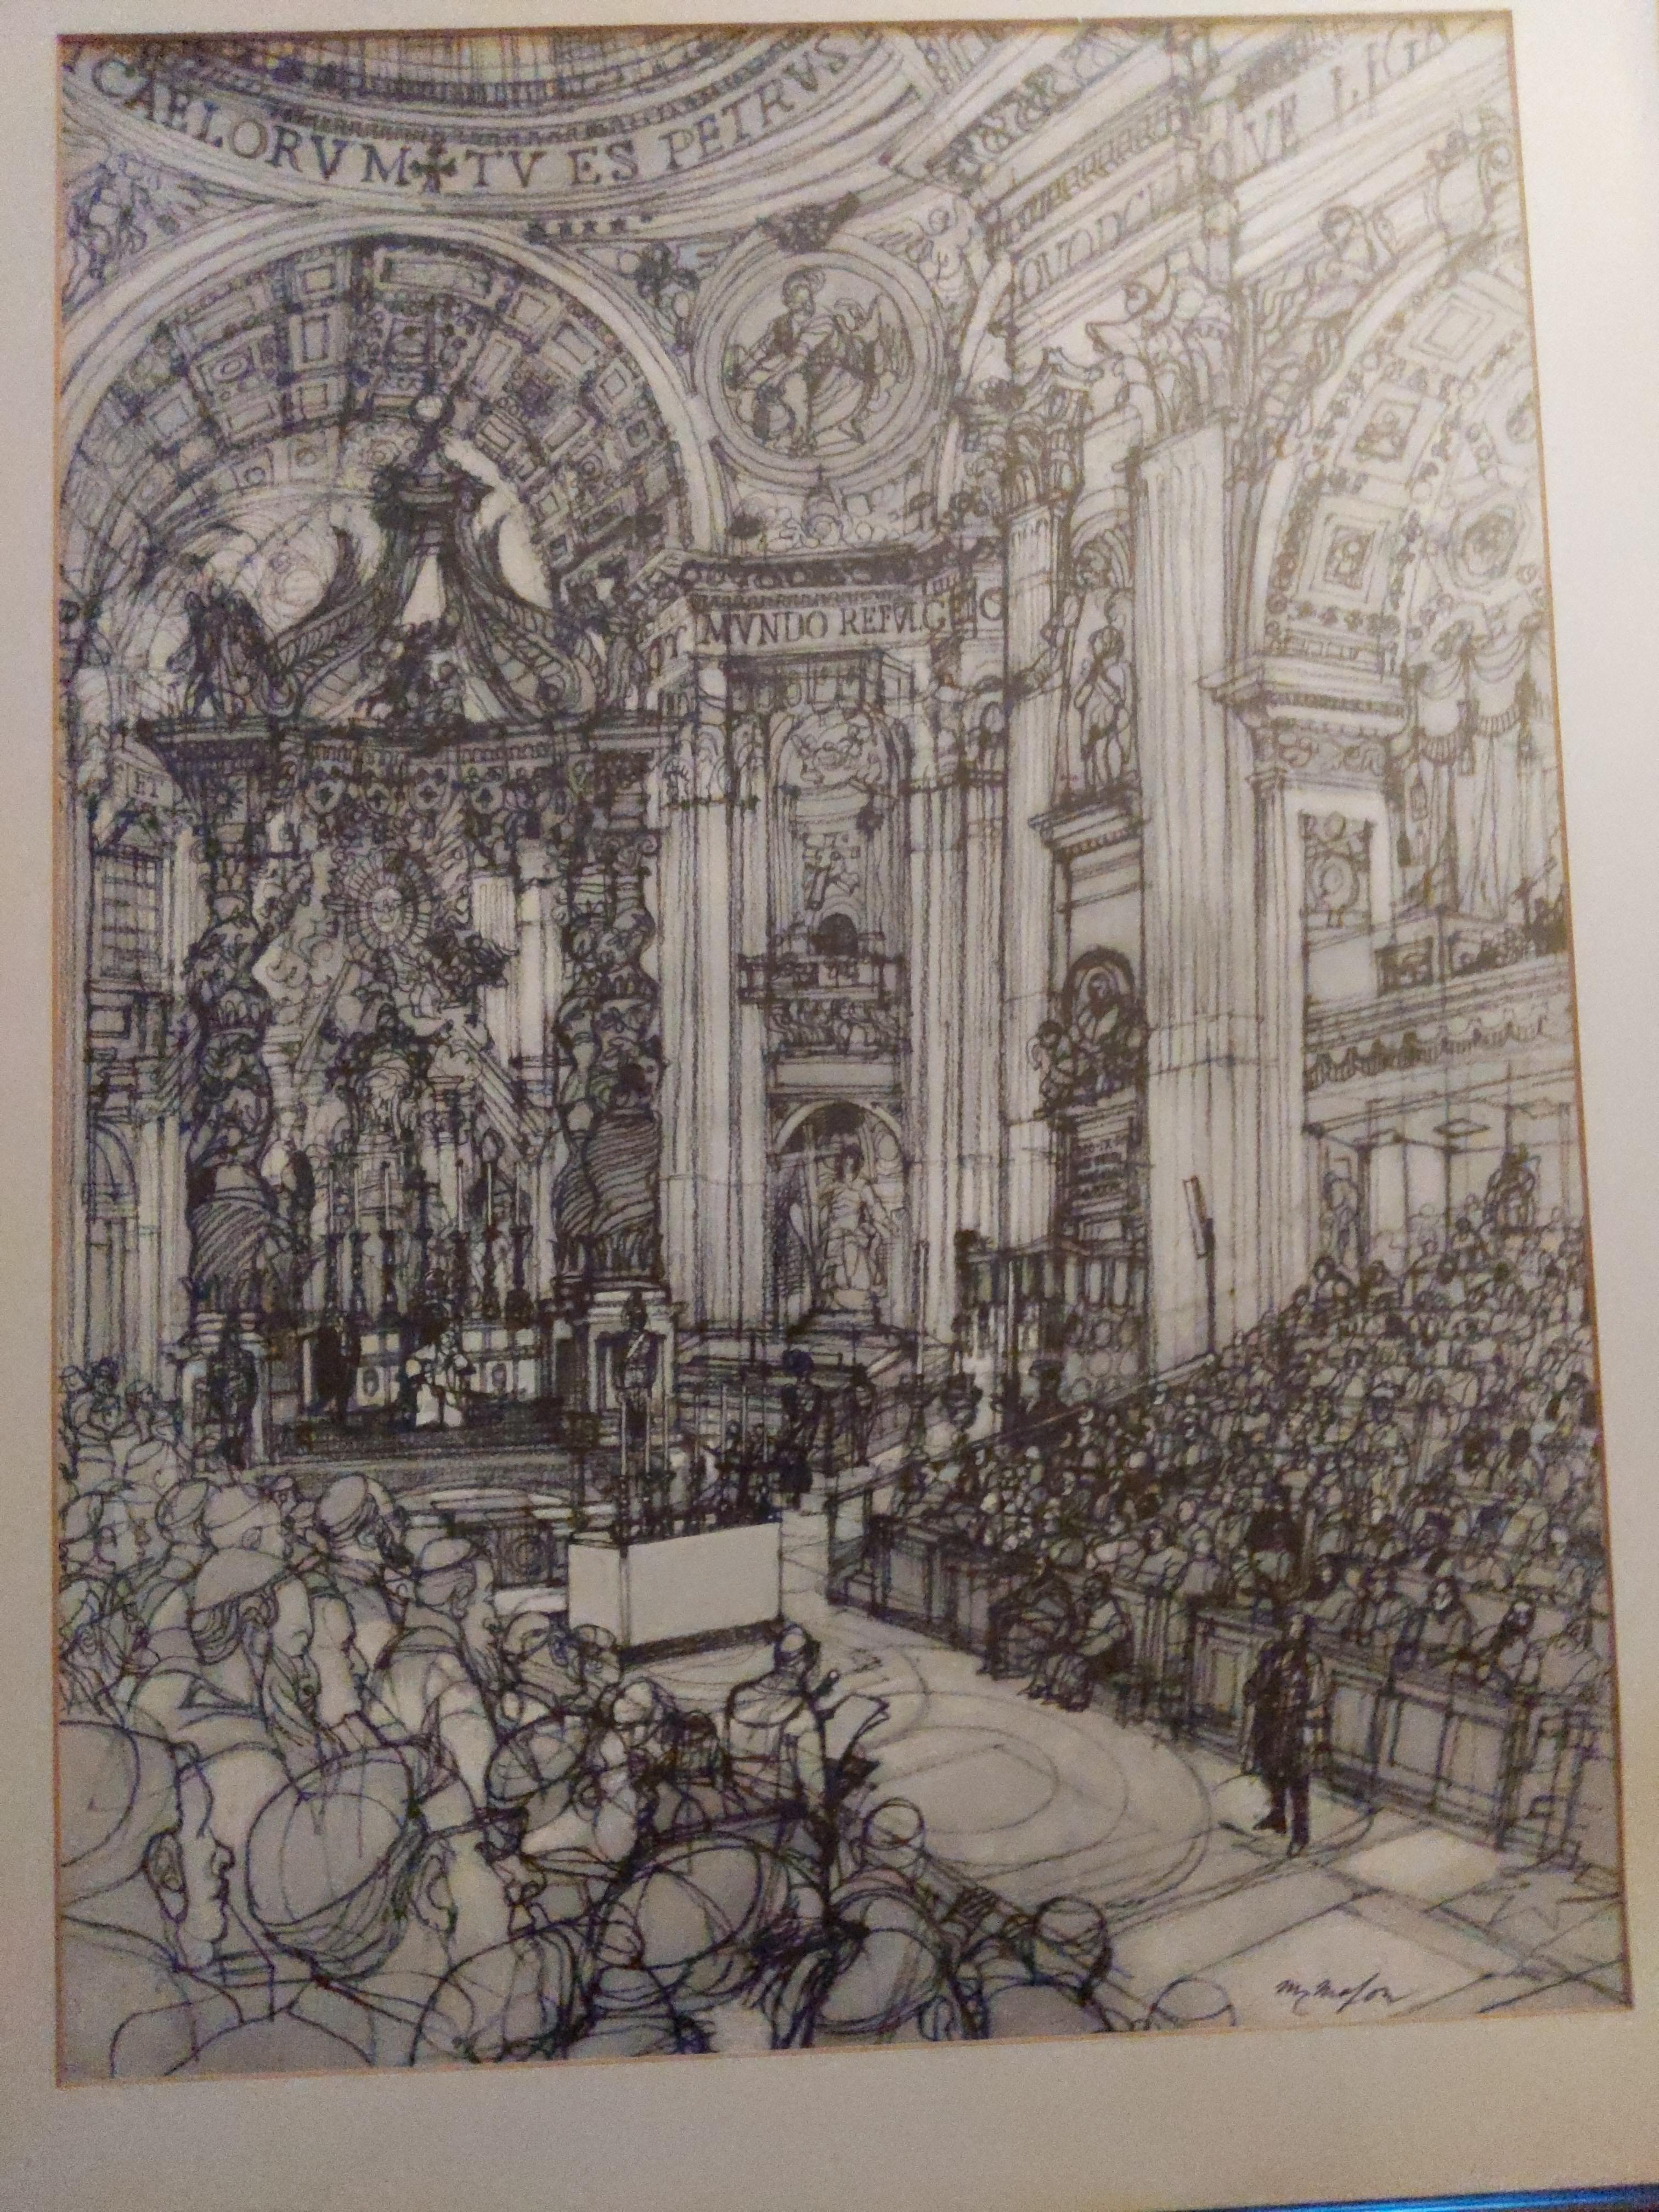 CAELORVM ✠ TV ES PETRVS
QVODCV
VE LIGA
MVNDO REFVLGE